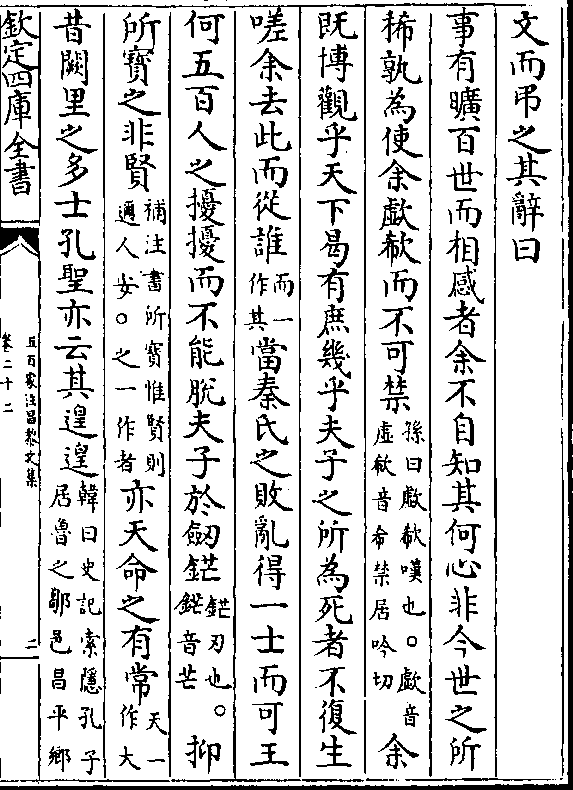 文而弔之其辭曰
事有曠百世而相感者余不自知其何心非今世之所
稀孰為使余歔欷而不可禁孫曰歔欷嘆也。歔音虛欷音希禁居吟切余
既博觀乎天下曷有庶幾乎夫子之所為死者不復生
嗟余去此而從誰而一作其當秦氏之敗亂得一士而可王
何五百人之擾擾而不能脫夫子於劒鋩鋩刃也。鋩音芒抑
所寶之非賢補注書所寶惟賢則邇人安。之一作者亦天命之有常天一作大
昔闕里之多士孔聖亦云其遑遑韓曰史記索隱孔子居魯之鄹邑昌平鄉
欽定四庫全書
五百家注昌黎文集
卷二十二
二